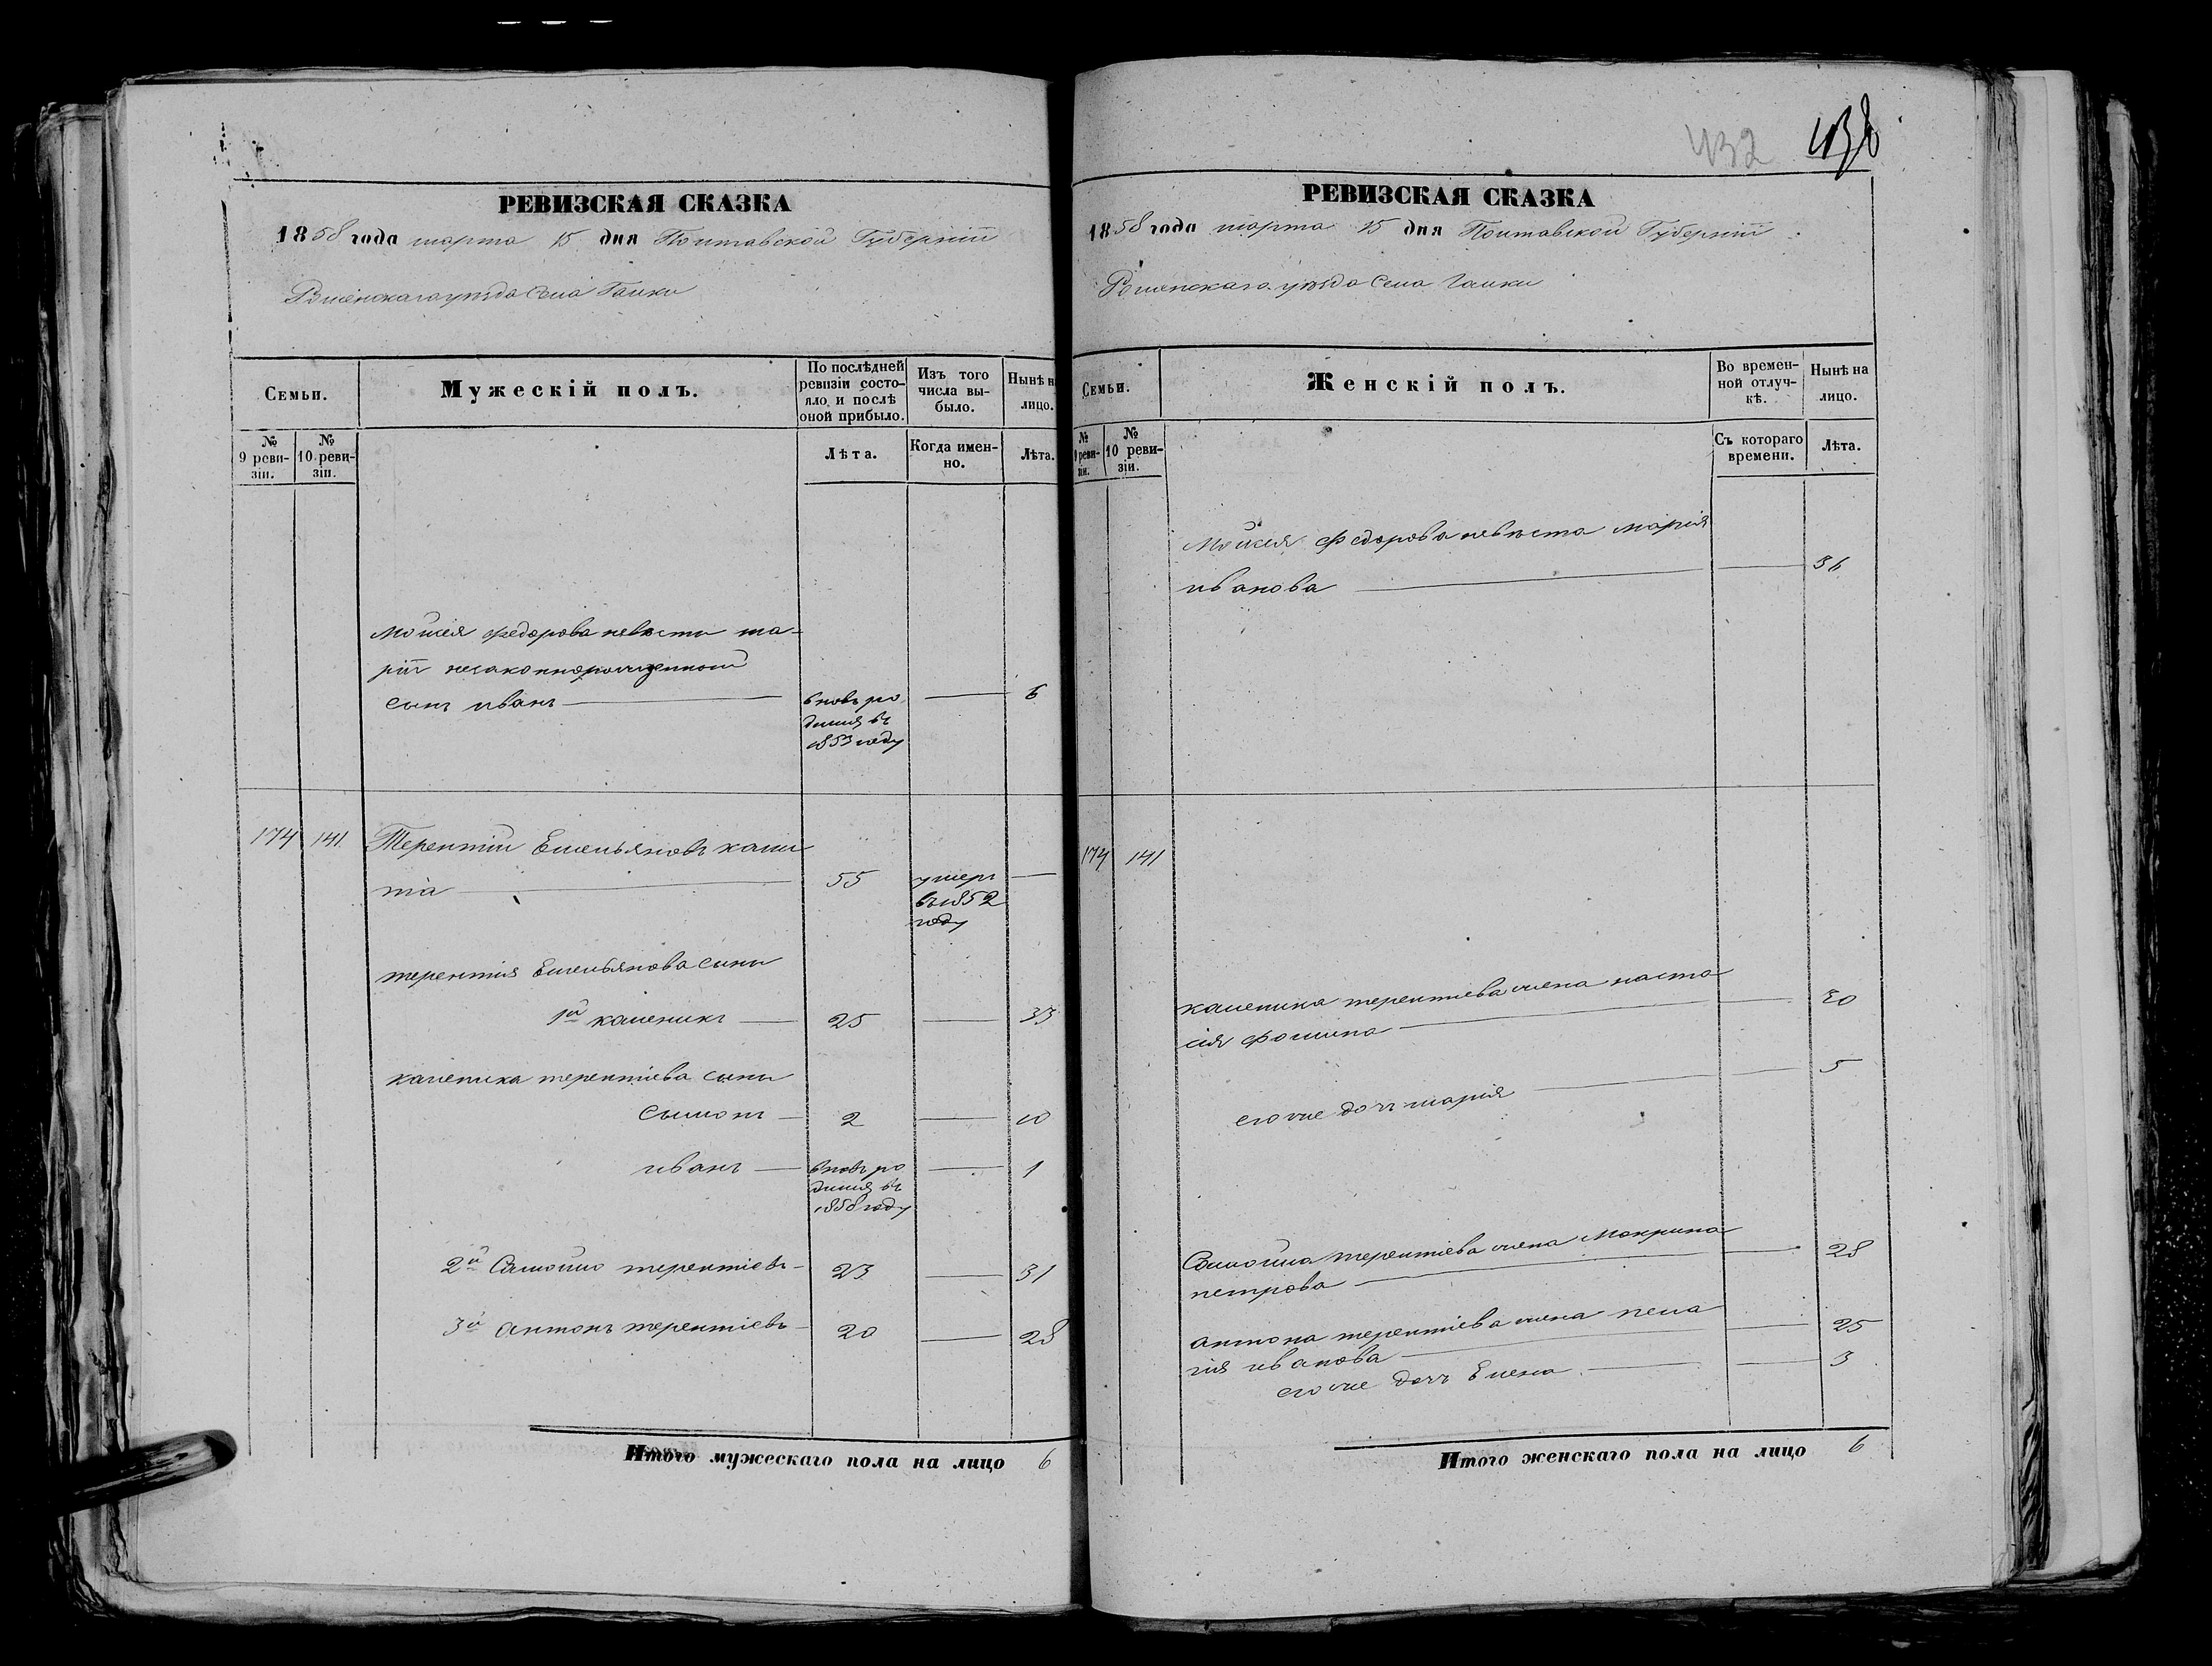 РЕВИЗСКАЯ СКАЗКА
1858 года марта 15 дня Полтавской Губерніи
уѣзда Села Галки
Семьи.
Мужескій полъ.
По послѣдней ревизіи состояло и послѣ оной прибыло.
Изъ того числа выбыло.
Нынѣ на лицо.
№ 9 ревизіи.
№ 10 ревизіи.
Лѣта.
Когда именно.
Лѣта.
Мойсея Федорова невѣстки ма-
ріи незаконнорожденной
сынъ иванъ 6
вновь ро
дился въ
1853 году
174 141 Терентій Емельяновъ
55 умеръ
въ 1852
году
терентія Емельянова сыны
1й каленикъ 25 33
каленика терентіева сыны
сымонъ 2 10
иванъ вновь ро 1
дился въ
1858 году
2й Самойло терентіевъ 23 31
3й антонъ терентіевъ 20 28
Итого мужескаго пола на лицо 6
432
РЕВИЗСКАЯ СКАЗКА
1858 года марта 15 дня Полтавской Губерніи
уѣзда Села Галки
Семьи.
Женскій полъ.
Во временной отлучкѣ.
Нынѣ на лицо.
№ 9 ревизіи.
№ 10 ревизіи.
Съ котораго времени.
Лѣта.
Мойсея Федорова невѣстка марія
иванова 36
174 141
каленика терентіева жена наста
сія фомина 30
его же дочь марія 5
Самойла терентіева жена Макрина
петрова 28
антона терентіева жена пела
гія иванова 25
его же дочь Елена 3
Итого женскаго пола на лицо 6